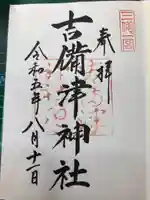 奉拝
三備一宮
吉備津神社
令和五年八月十一日